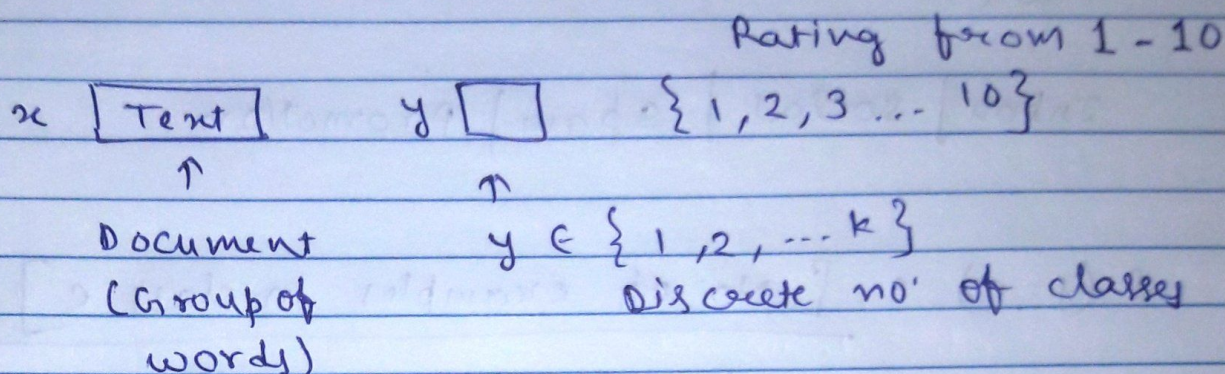 Rating from 1 - 10
x [Text] y [ ] {1, 2, 3 ... 10}
↑ ↑
Document y ∈ {1, 2, ... k}
(Group of Discrete no. of classes
words)